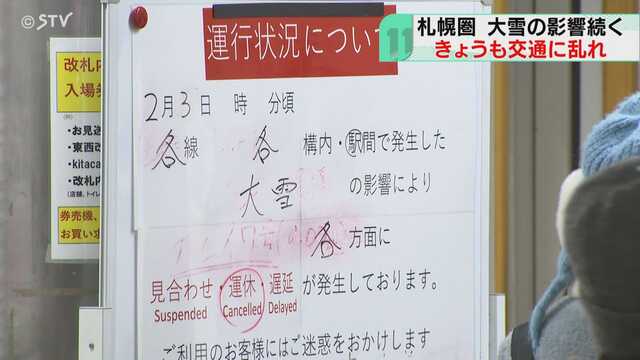 STV
札幌圏 大雪の影響続く
きょうも交通に乱れ
11
運行状況について
2月3日 時 分頃
各線 各 構内・駅間で発生した
大雪 の影響により
各 方面に
見合わせ・運休・遅延が発生しております。
Suspended Cancelled Delayed
ご利用のお客様にはご迷惑をおかけします
改札内
入場券
・お見送
・東西改
・kitaca
・改札内
券売機、
お買い求